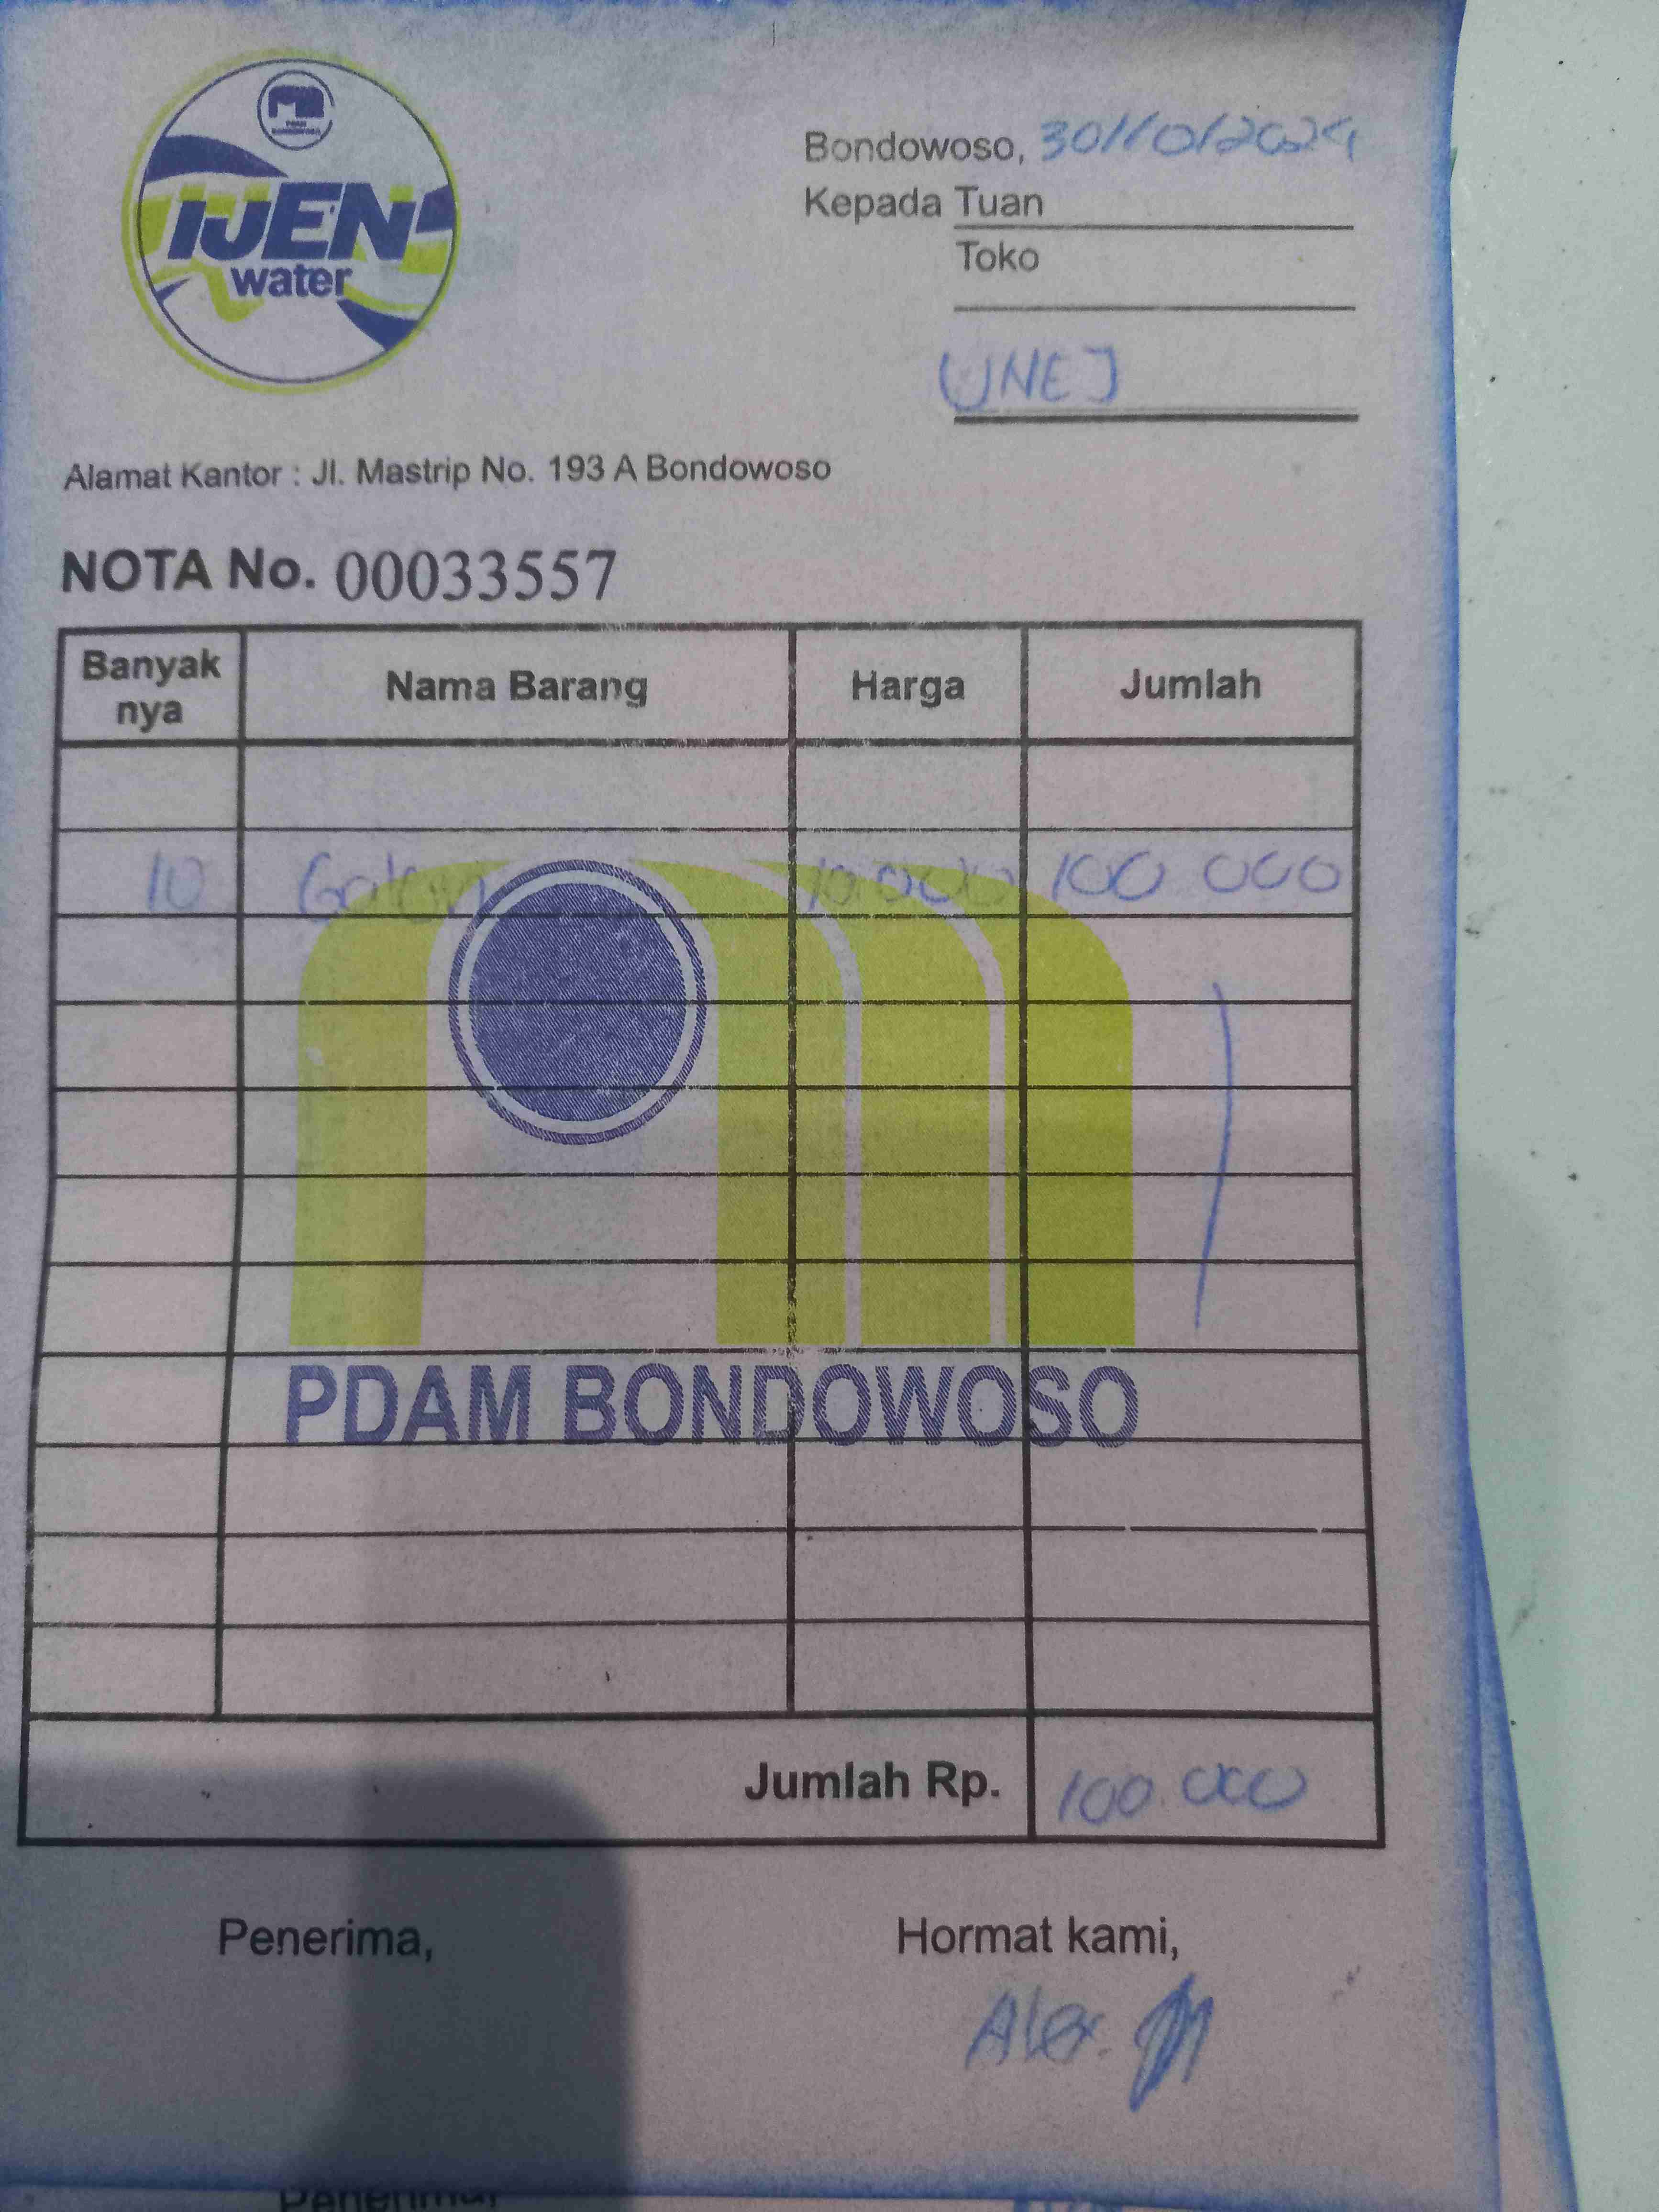 IJEN
water
Bondowoso, 30/10/2024
Kepada Tuan
Toko
UNEJ
Alamat Kantor : Jl. Mastrip No. 193 A Bondowoso
NOTA No. 00033557
Banyak nya Nama Barang Harga Jumlah
10 Galon 10.000 100 000
PDAM BONDOWOSO
Jumlah Rp. 100.000
Penerima, Hormat kami,
Alex.
Penerima,